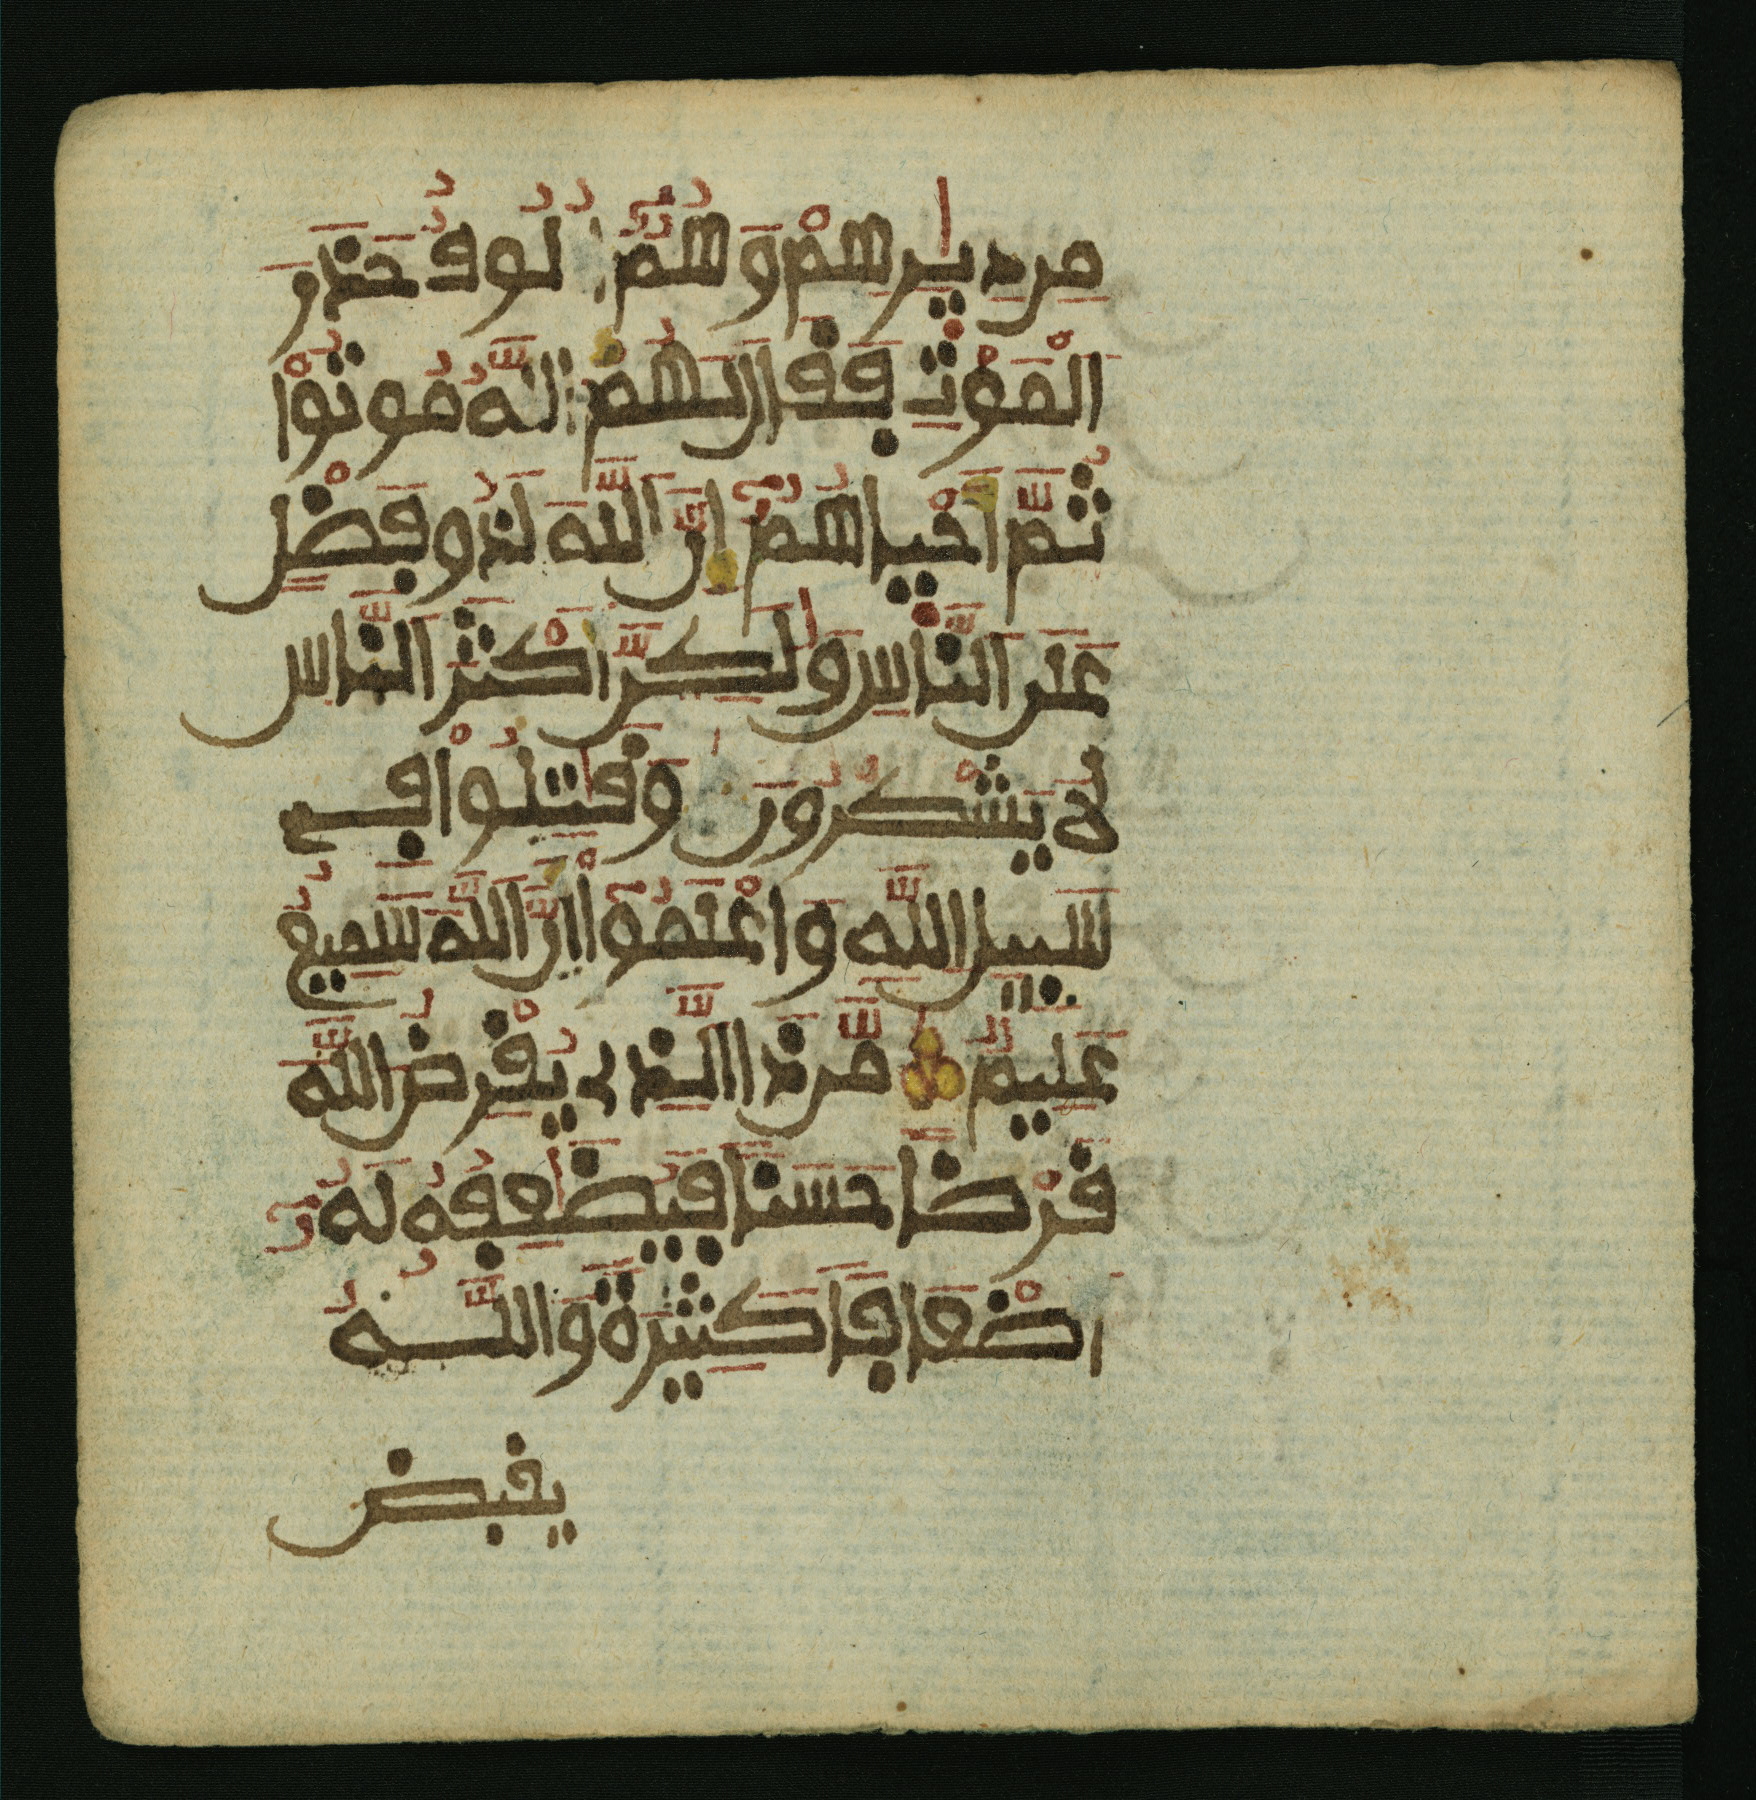 مِن دِيٰرِهِمْ وَهُمُۥٓ أُلُوفٌ حَذَرَ
الْمَوْتِ فَقَالَ لَهُمُ اللَّهُ مُوتُواْ
ثُمَّ أَحْيَاهُمُۥٓ إِنَّ اللَّهَ لَذُو فَضْلٍ
عَلَى النَّاسِ وَلَٰكِنَّ أَكْثَرَ النَّاسِ
لَا يَشْكُرُونَ وَقَٰتِلُواْ فِي
سَبِيلِ اللَّهِ وَاعْلَمُوٓاْ أَنَّ اللَّهَ سَمِيعٌ
عَلِيمٌ مَّن ذَا الَّذِي يُقْرِضُ اللَّهَ
قَرْضًا حَسَنًا فَيُضَٰعِفُهُ لَهُۥٓ
أَضْعَافًا كَثِيرَةً وَاللَّهُ
يقبض